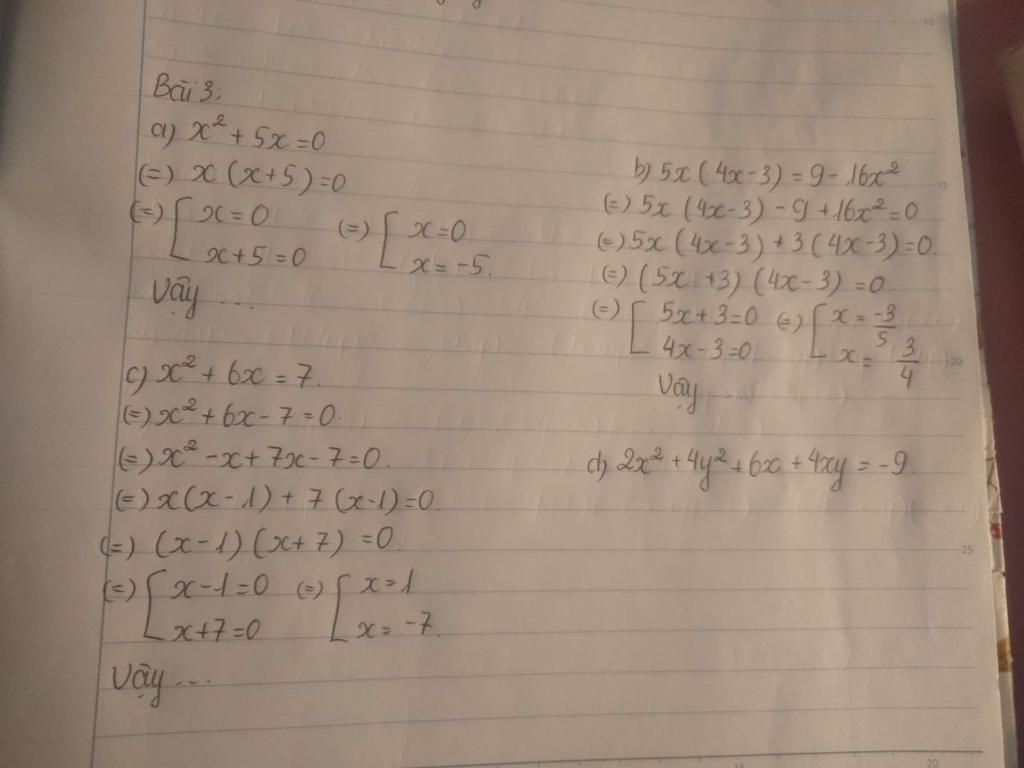 Bài 3:
a) x² + 5x = 0
(=) x (x+5) = 0
(=) [ x = 0
x+5 = 0
(=) [ x = 0
x = -5.
Vậy ...
b) 5x (4x-3) = 9 - 16x²
(=) 5x (4x-3) - 9 + 16x² = 0
(=) 5x (4x-3) + 3 (4x-3) = 0.
(=) (5x + 3) (4x-3) = 0.
(=) [ 5x + 3 = 0
4x - 3 = 0.
(=) [ x = -3/5
x = 3/4
Vậy ...
c) x² + 6x = 7.
(=) x² + 6x - 7 = 0.
(=) x² - x + 7x - 7 = 0.
(=) x (x - 1) + 7 (x-1) = 0.
(=) (x-1) (x+7) = 0.
(=) [ x - 1 = 0
x + 7 = 0
(=) [ x = 1
x = -7.
Vậy ...
d) 2x² + 4y² + 6x + 4xy = -9.
10
15
20
25
15
20